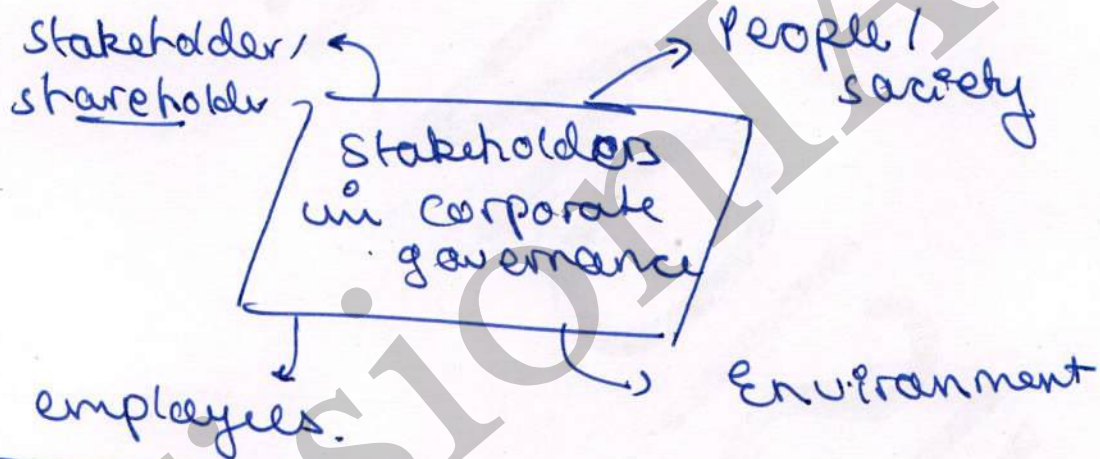 Stakeholder/
shareholder
People/
society
Stakeholders
in corporate
governance
employees.
Environment